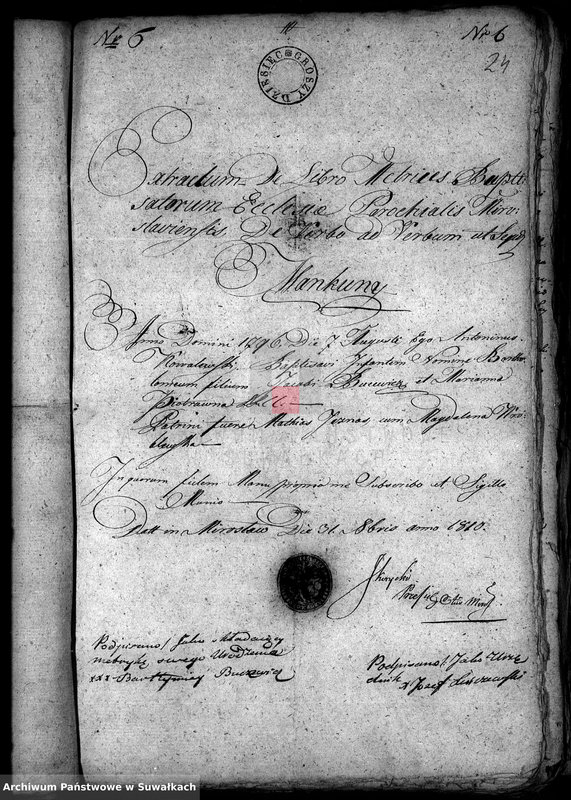 Nr 6
Nr 6
24
DZIESIĘC GROSZY
Extractum De Libro Metrices Bapti
satorum Ecclesiæ Parochialis Miro
slaviensis De Verbo ad Verbum ut
Mankuny
Anno Domini Die 7 Augusti Ego Antoninus
Kowalewski Baptisavi Infantem Nomine Barth
lomeum filium Jacobi Bucewicz et Marianna
Piotrowna
Patrini fuere Mathias cum Magdalena Wro
blewska
In quorum fidem Manu propria me Subscribo et Sigillo
Munio
Datt in Miroslaw Die 31 Xbris anno 1810.
Podpisano
metrykę swego Urodzenia
xxx Bartłomiej Bucewicz
Podpisano Jako Urzę
dnik
Archiwum Państwowe w Suwałkach